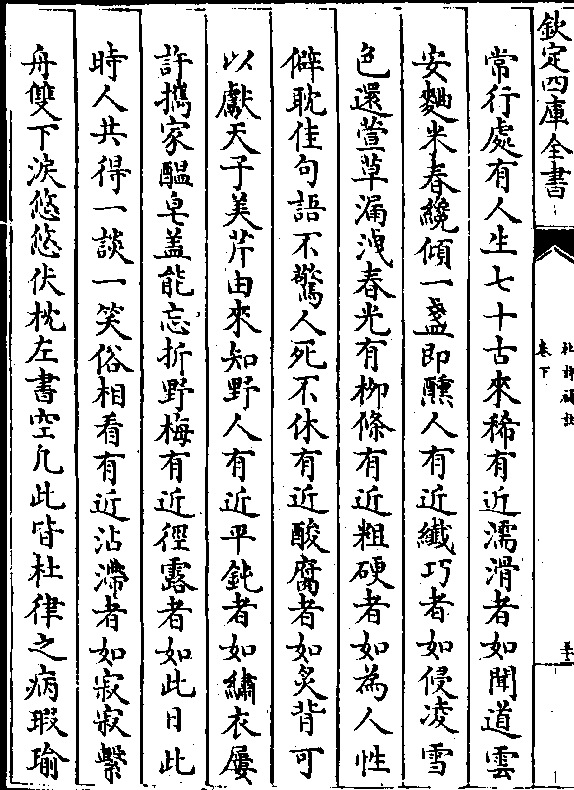 欽定四庫全書
卷下
常行處有人生七十古來稀有近濡滑者如聞道雲
安麴米春纔傾一盞即醺人有近纖巧者如侵凌雪
色還萱草漏洩春光有栁條有近粗硬者如為人性
僻耽佳句語不驚人死不休有近酸腐者如炙背可
以獻天子美芹由來知野人有近平鈍者如繡衣屢
許攜家醖皂盖能忘折野梅有近徑露者如此日此
時人共得一談一笑俗相看有近沾滯者如寂寂繫
舟雙下淚悠悠伏枕左書空凡此皆杜律之病瑕瑜